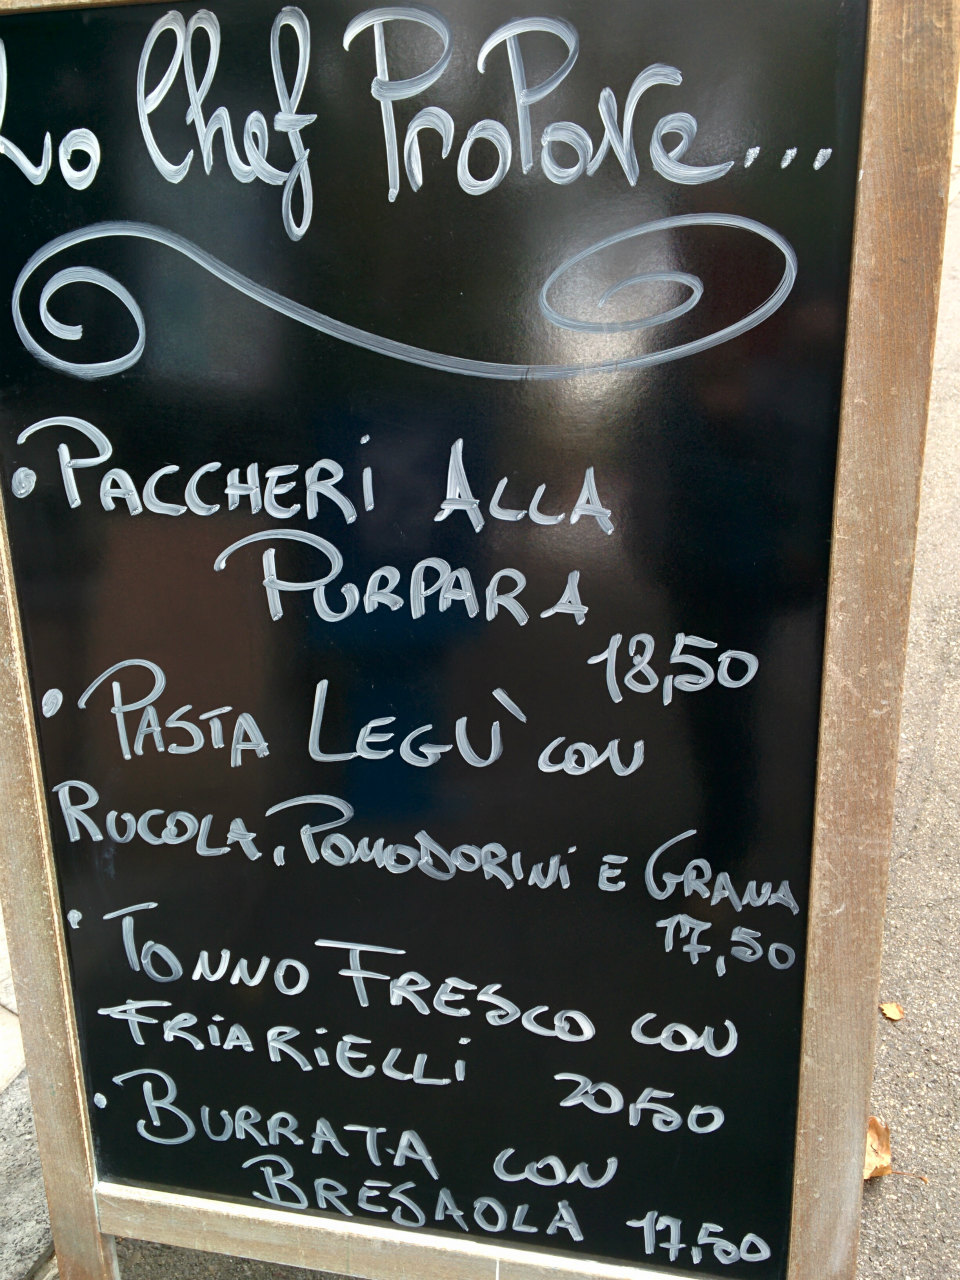 Lo Chef Propone...
• PACCHERI ALLA
PURPARA
18,50
• PASTA LEGÙ CON
RUCOLA, POMODORINI E GRANA
17,50
• TONNO FRESCO CON
FRIARIELLI 20,50
• BURRATA CON
BRESAOLA 17,50